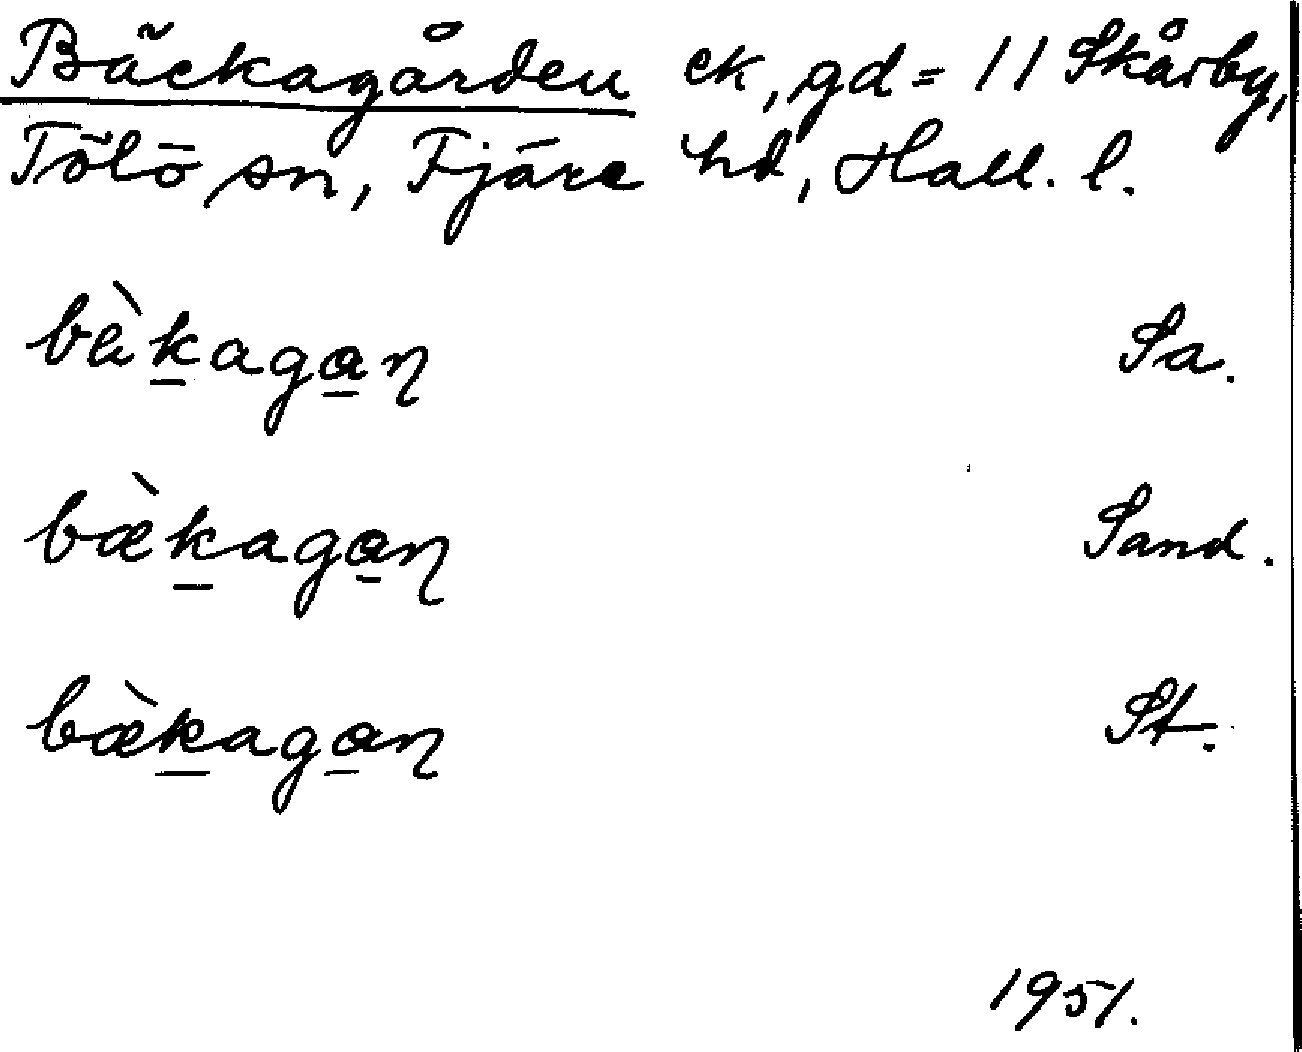 Bäckagården ek, gd = 11 Skårby,
Tölö sn, Fjäre hd, Hall. l.
bä̀kagaɳ Sa.
bæ̀kagaɳ Sand.
bæ̀kagaɳ St.
1951.